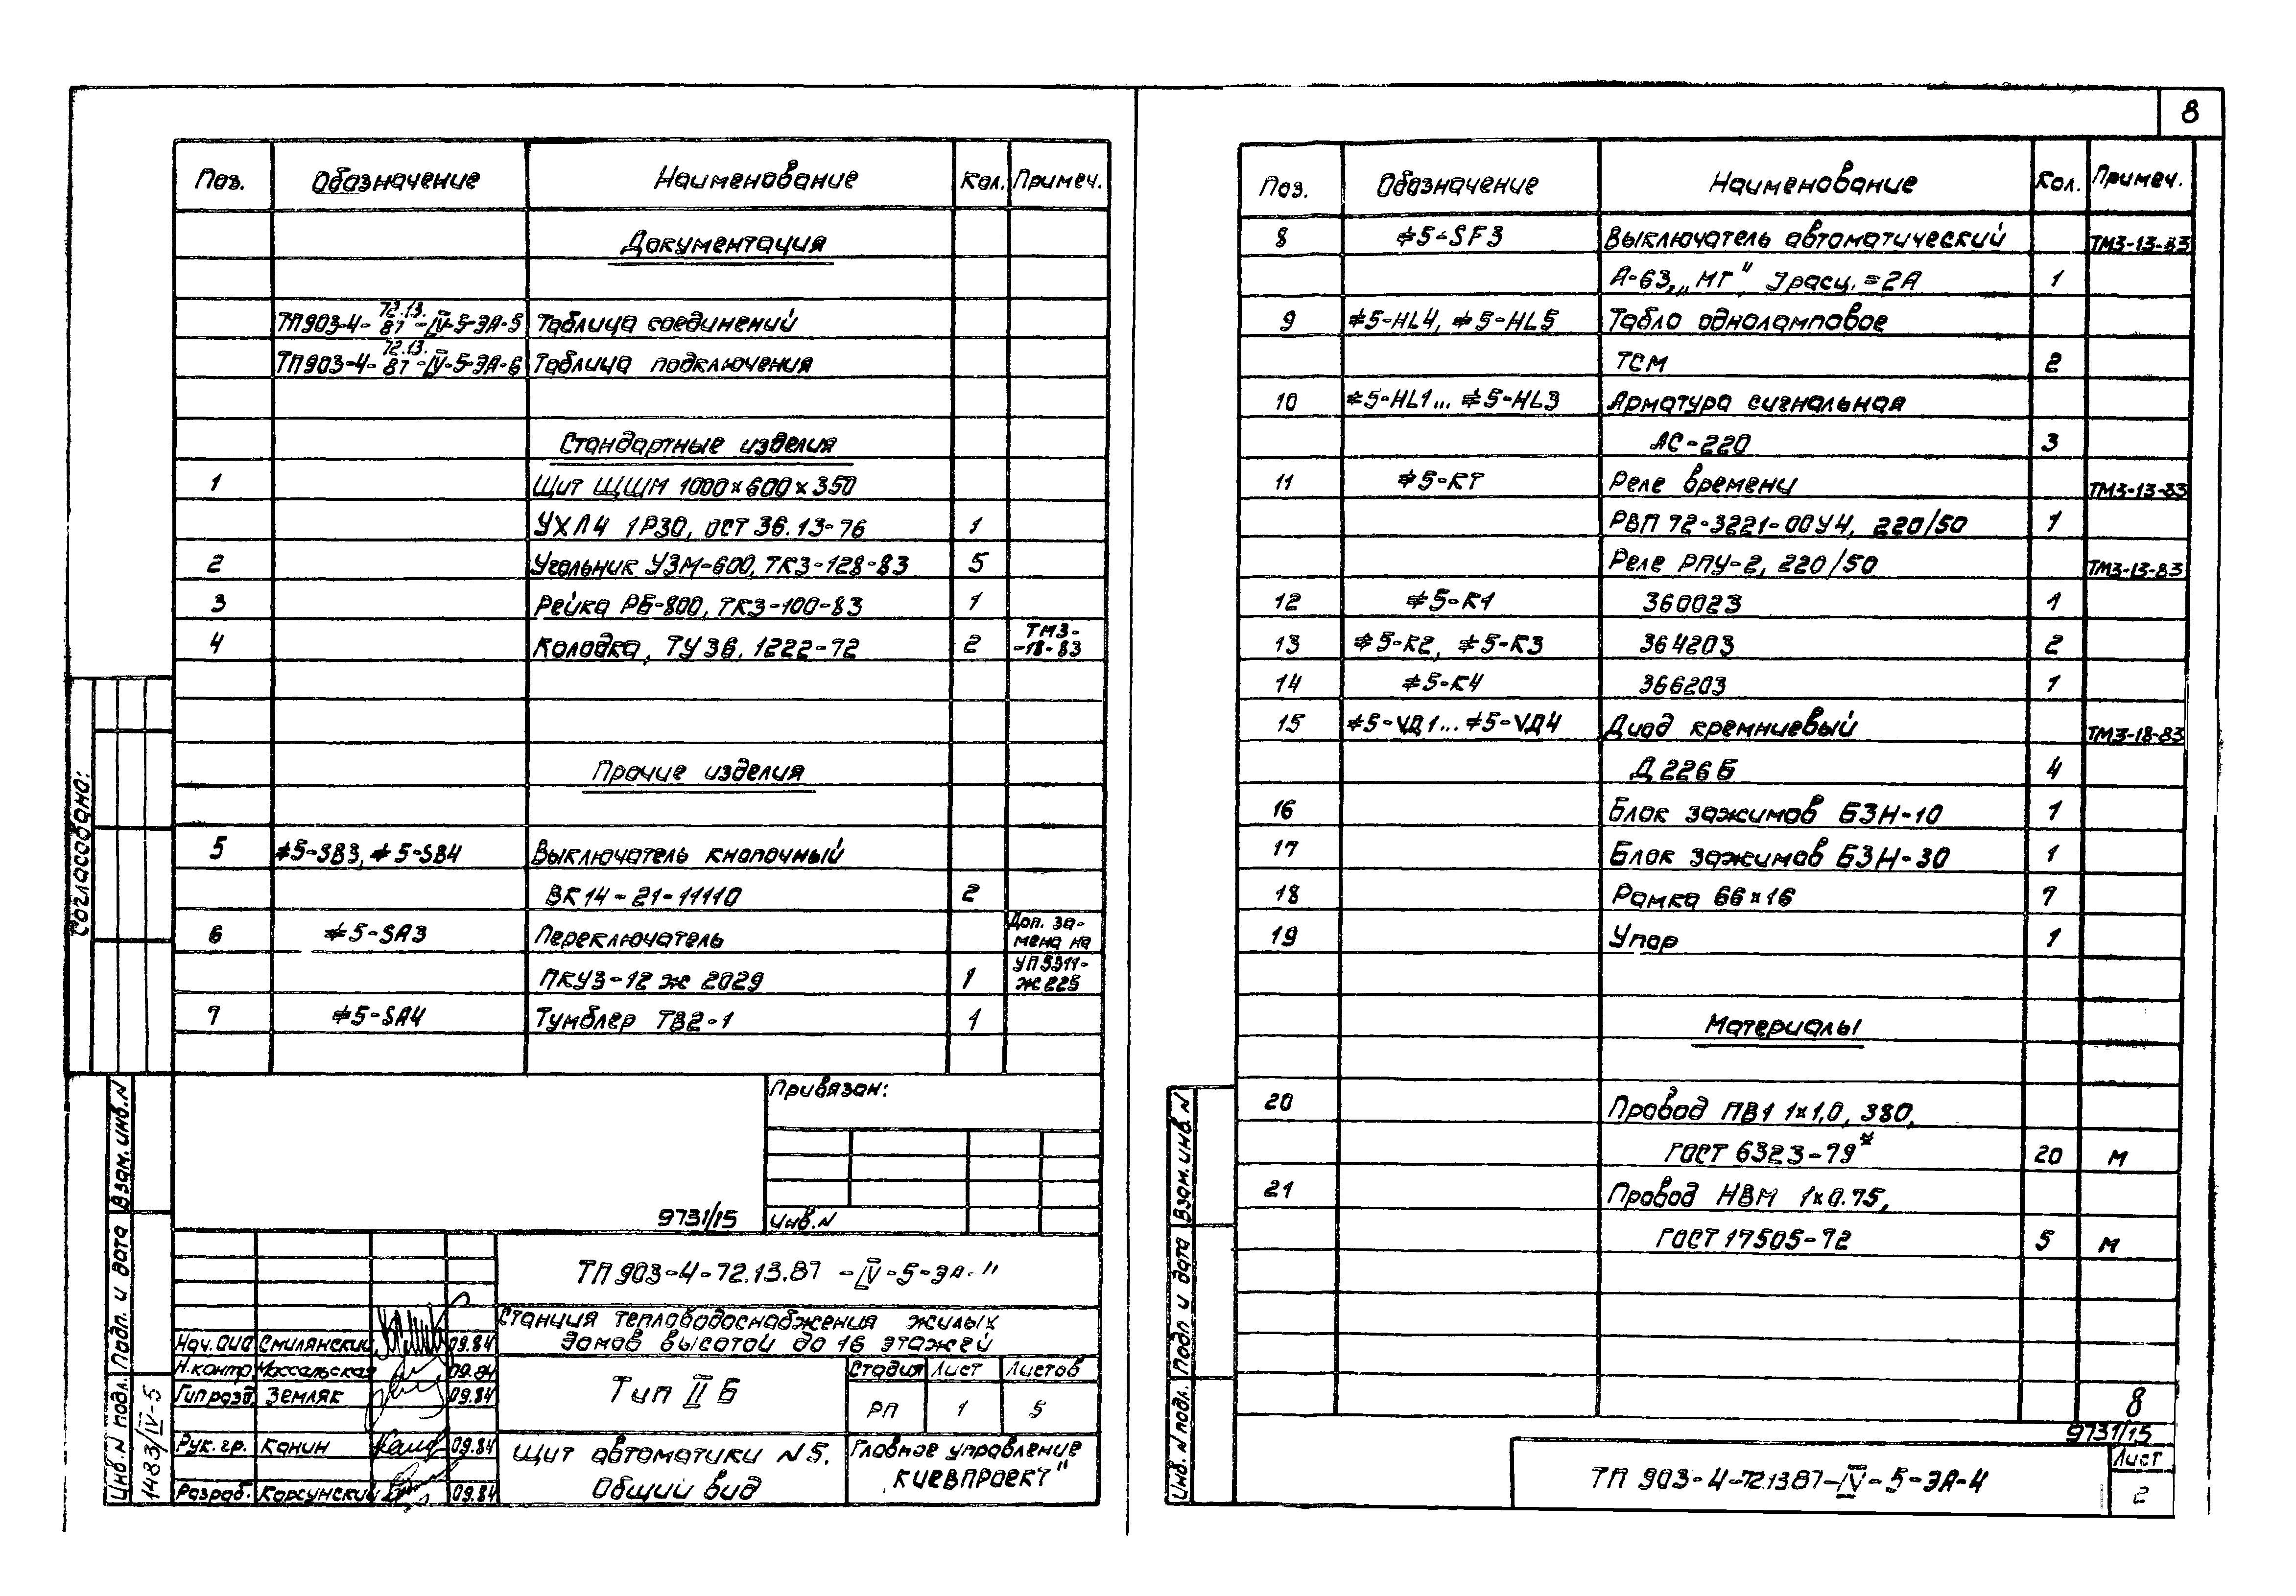 8
Поз. Обозначение Наименование Кол. Примеч.
Документация
ТП903-4-72.13.87-IV-5-ЭА-5 Таблица соединений
ТП903-4-72.13.87-IV-5-ЭА-6 Таблица подключения
Стандартные изделия
1 Щит ЩШМ 1000×600×350
УХЛ4 1Р30, ОСТ 36.13-76 1
2 Угольник УЗМ-600, ТКЗ-128-83 5
3 Рейка РБ-800, ТКЗ-100-83 1
4 Колодка, ТУ 36. 1222-72 2 ТМ3-
-18-83
Прочие изделия
5 ≠5-SB3, ≠5-SB4 Выключатель кнопочный
ВК14-21-11110 2
6 ≠5-SA3 Переключатель Доп. за-
мена на
ПКУ3-12 ж 2029 1 УП5311-
ж225
7 ≠5-SA4 Тумблер ТВ2-1 1
Привязан:
9731/15 Инв.N
ТП 903-4-72.13.87 -IV-5-ЭА-"
Станция тепловодоснабжения жилых
домов высотой до 16 этажей
Нач. ОИО Смилянский 09.84
Н.контр. Массальская 09.84
Гип разд. Земляк 09.84
Рук. гр. Канин 09.84
Разраб. Корсунский 09.84
Тип II Б
Стадия Лист Листов
РП 1 5
Щит автоматики N5.
Общий вид
Главное управление
КИЕВПРОЕКТ"
Согласовано:
Взам. инв. N
Подп. и дата
Инв. N подл.
1483/IV-5
Поз. Обозначение Наименование Кол. Примеч.
8 ≠5-SF3 Выключатель автоматический ТМ3-13-83
А-63, „МГ", Iрасц. = 2А 1
9 ≠5-HL4, ≠5-HL5 Табло одноламповое
ТСМ 2
10 ≠5-HL1... ≠5-HL3 Арматура сигнальная
АС-220 3
11 ≠5-КТ Реле времени ТМ3-13-83
РВП 72-3221-00У4, 220/50 1
Реле РПУ-2, 220/50 ТМ3-13-83
12 ≠5-К1 360023 1
13 ≠5-К2, ≠5-К3 364203 2
14 ≠5-К4 366203 1
15 ≠5-VД1... ≠5-VД4 Диод кремниевый ТМ3-18-83
Д 226 Б 4
16 Блок зажимов БЗН-10 1
17 Блок зажимов БЗН-30 1
18 Рамка 66×16 7
19 Упор 1
Материалы
20 Провод ПВ1 1×1,0, 380,
ГОСТ 6323-79* 20 м
21 Провод НВМ 1×0.75,
ГОСТ 17505-72 5 м
8
9731/15
ТП 903-4-72.13.87-IV-5-ЭА-4
Лист
2
Взам. инв. N
Подп и дата
Инв. N подл.